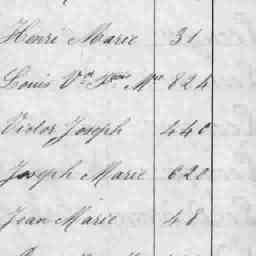 Henri Marie 31
Louis Vor Fois Mie 824
Victor Joseph 440
Joseph Marie 620
Jean Marie 48